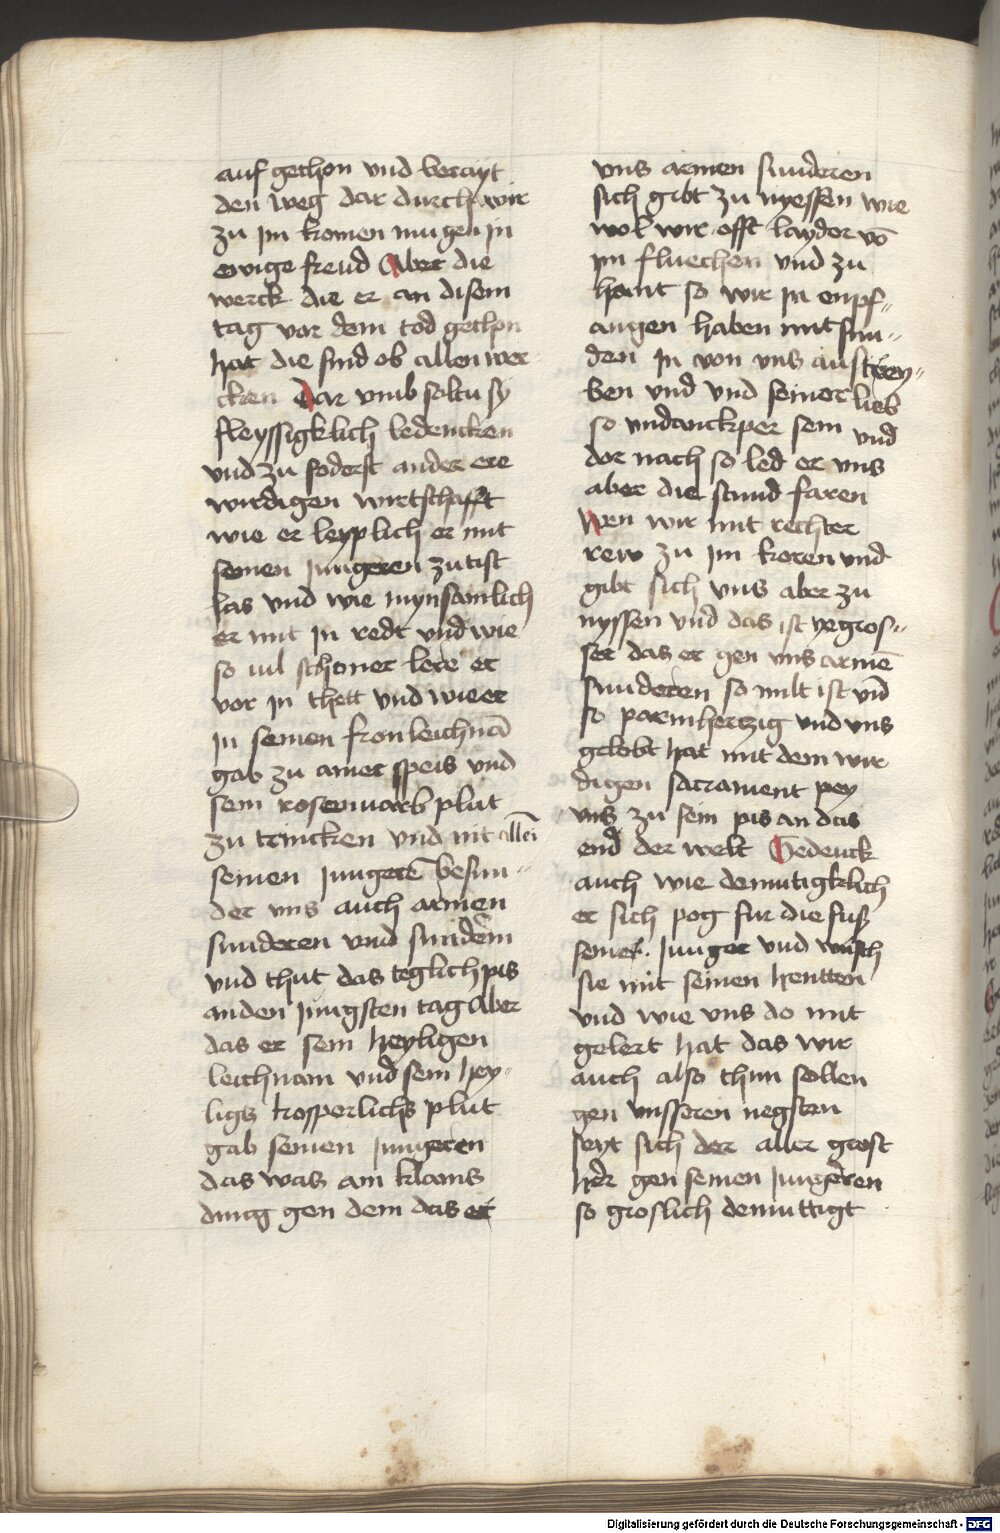 auf gethon vnd berayt
den weg dar durch wir
zu jm komen mugen jn
ewige freud Aber die
werck die er an disem
tag vor dem tod gethon
hat die sind ob allen wer
cken Dar vmb soltu sy
fleyssigklich bedencken
vnd zu foderst an der ere
wirdigen wirtschafft
wie er leyplich er mit
seinen jungeren zu tist
sas vnd wie mynsamlich
er mit jn redt vnd wie
so uil schoner lere er
vor jn thett vnd wie er
jn seinen fronleichnā
gab zu ainer speis vnd
sein rosenuarb plut
zu trincken vnd nit allei
seinen jungerē besun"
der vns auch armen
sunderen vnd sunderin
vnd thut das teglich pis
an den jungsten tag Aber
das er sein heyligen
leichnam vnd sein hey"
ligs kosperlichs plut
gab seinen jungeren
das was ain klains
ding gen dem das er
vns armen sunderen
sich gibt zu nyessen wie
wol wir offt layder vō
jm fluechen vnd zu
hant so wir jn enpf"
angen haben mit sun"
den jn von vns aus trey"
ben vnd vnd seiner lieb
so vndanckper sein vnd
dor nach so led er vns
aber die stund faren
Wen wir mit rechter
rew zu jm keren vnd
gibt sich vns aber zu
nyssen vnd das ist ye gros"
ser das er gen vns armē
sunderen so milt ist vn̄
so parmhertzig vnd vns
gelobt hat mit dem wir
digen sacrament pey
vns zu sein pis an das
end der welt Gedenck
auch wie demutigklich
er sich pog fur die fuß
seiner junger vnd wusch
sie mit seinen hentten
vnd wie vns do mit
gelert hat das wir
auch also thun sollen
gen vnsseren negsten
seyt sich der aller grost
her gen seinen jungeren
so groslich demuttigt
Digitalisierung gefördert durch die Deutsche Forschungsgemeinschaft - DFG